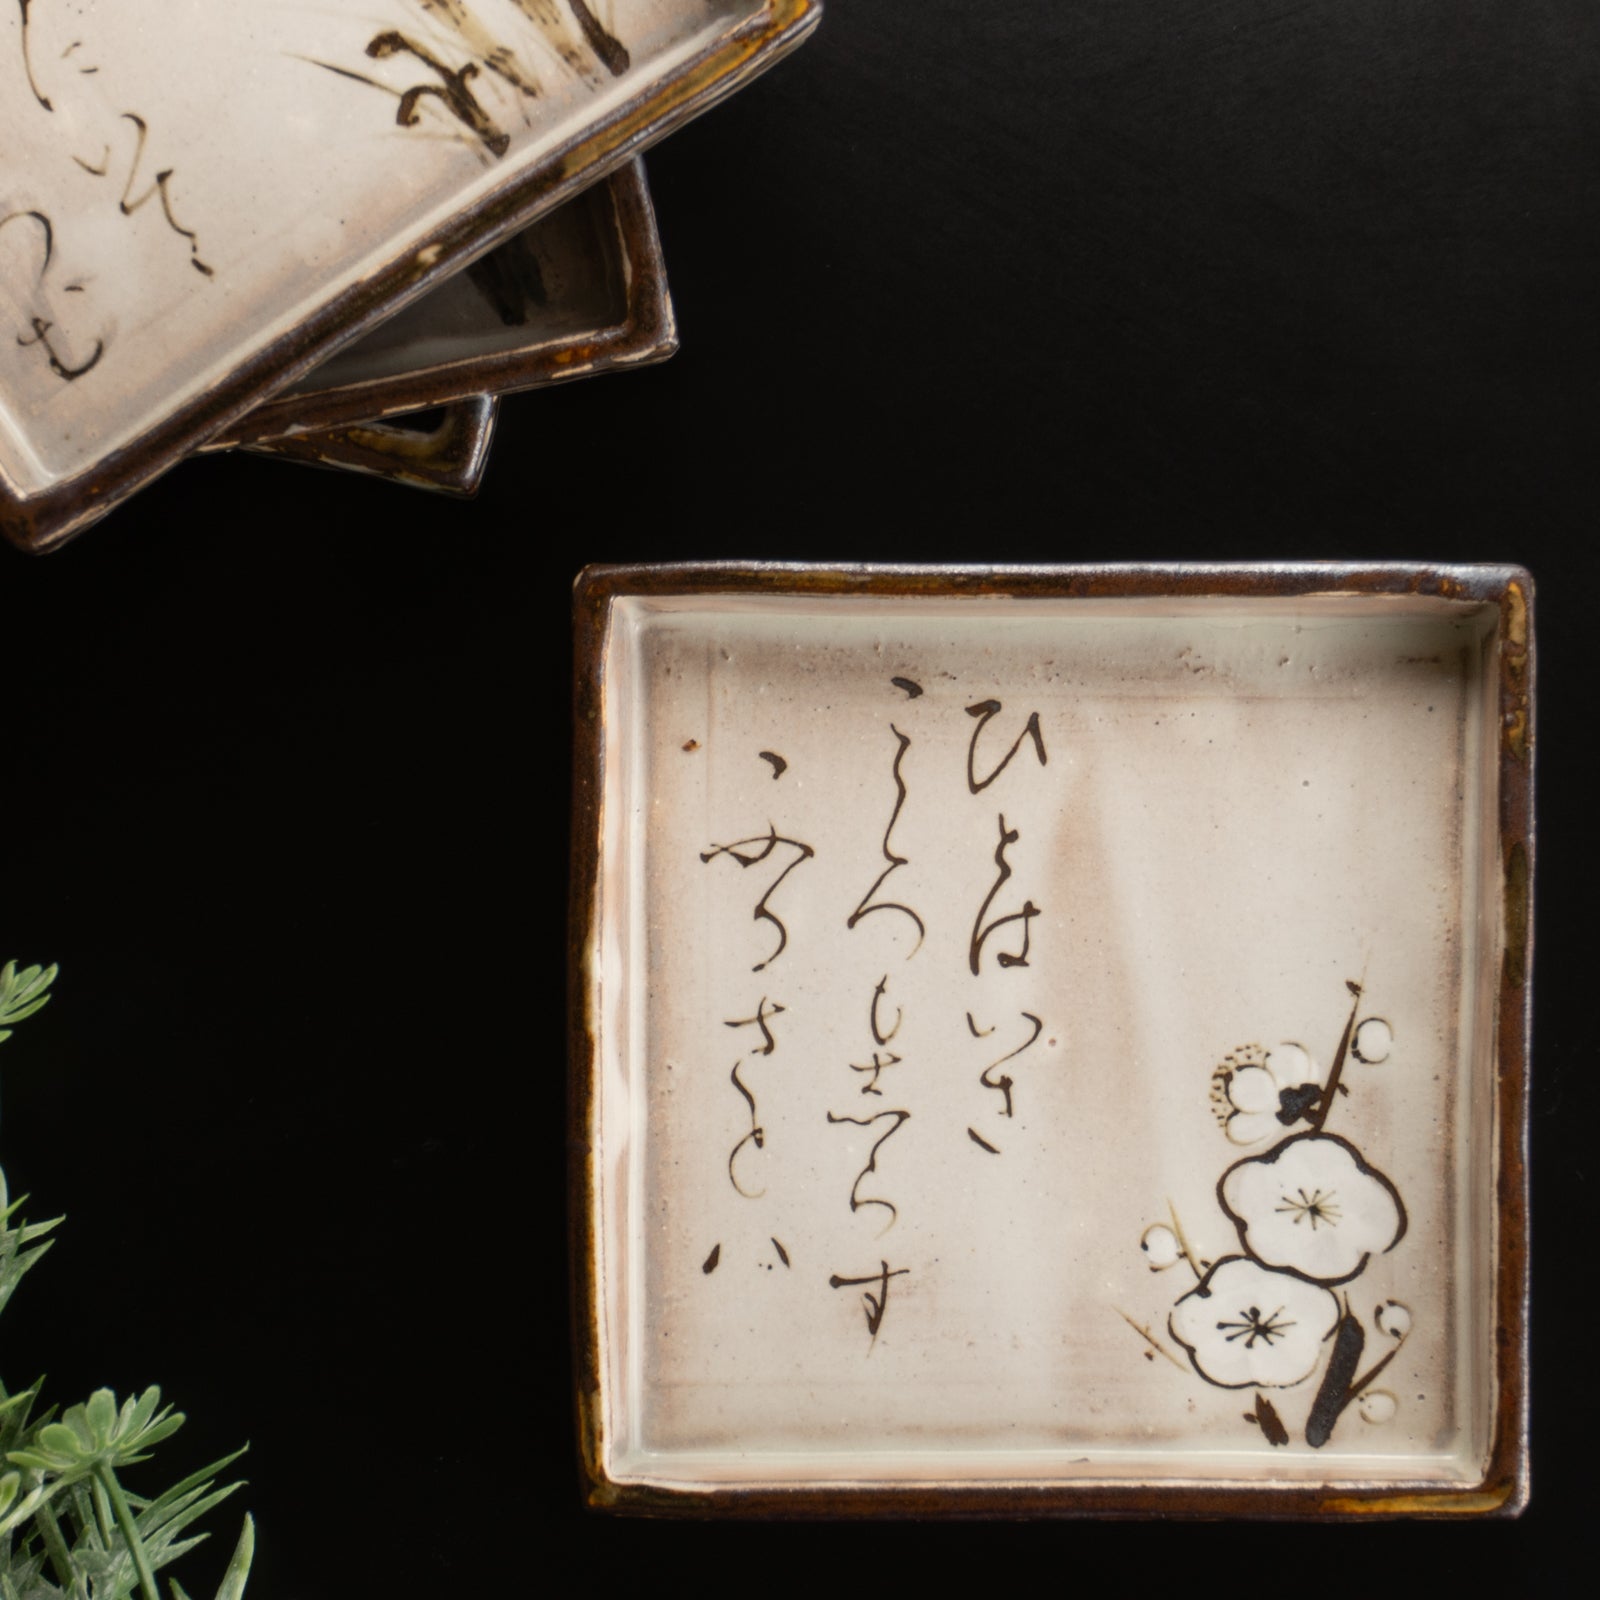 ひとはいさ
こゝろも志らす
ふるさとハ